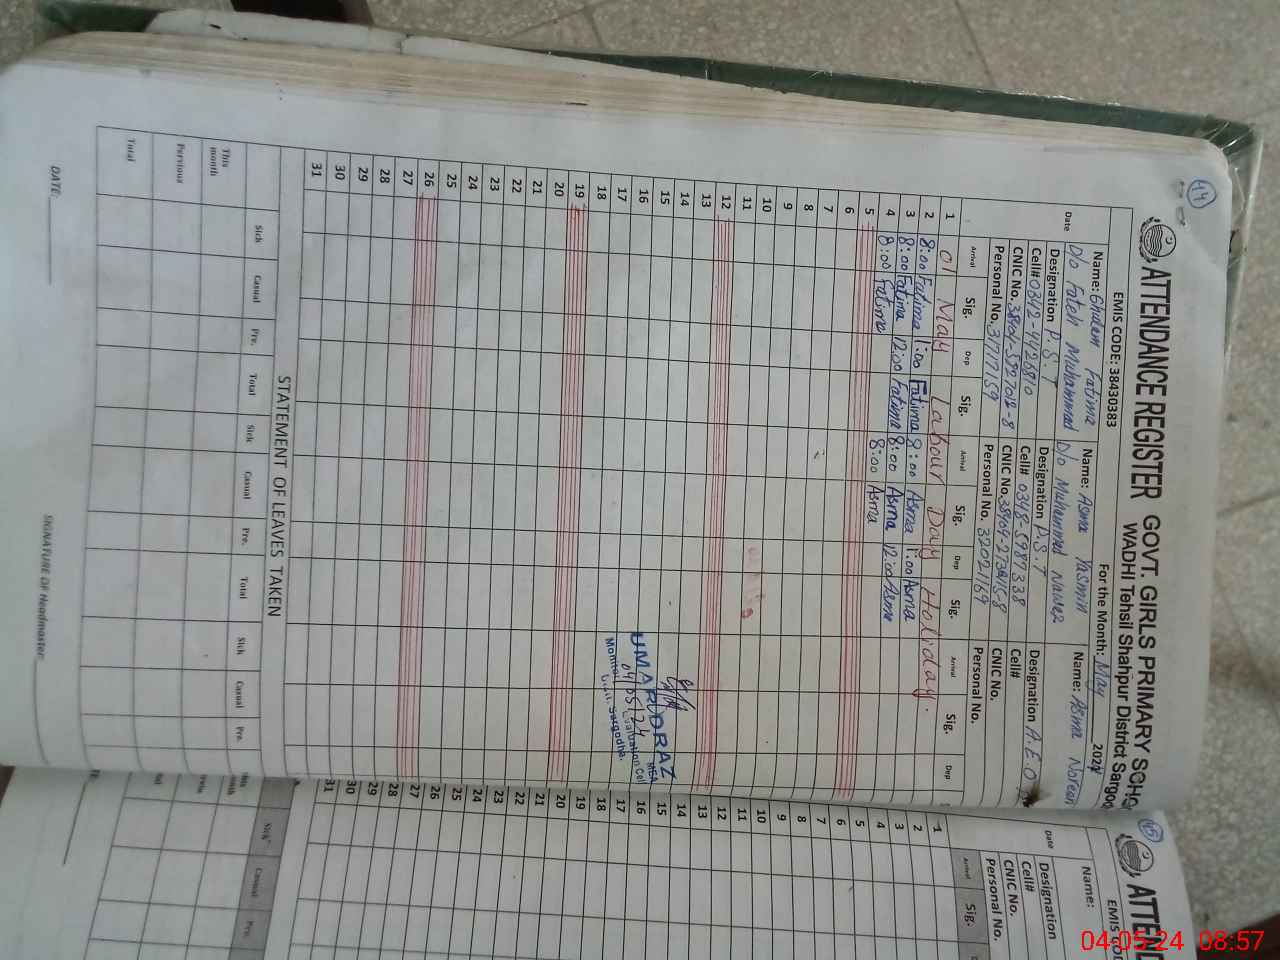 44
ATTENDANCE REGISTER GOVT. GIRLS PRIMARY SCHO
WADHI Tehsil Shahpur District Sargo
EMIS CODE: 38430383 For the Month: May 2024
Name: Ghulam Fatima Name: Asma Yasmin Name: Asma Noreen
D/o Fateh Muhammad D/o Muhammad Nawaz
Date Designation P.S.T Designation P.S.T Designation A.E.O
Cell# 0342-7726810 Cell# 0348-5987338 Cell#
CNIC No. CNIC No. CNIC No.
Personal No. 31777159 Personal No. 32021169 Personal No.
Arrival Sig. Dep Sig. Arrival Sig. Dep Sig. Arrival Sig. Dep
1 01 May Labour Day Holiday.
2 8:00 Fatima 1:00 Fatima 8:00 Asma 1:00 Asma
3 8:00 Fatima 12:00 Fatima 8:00 Asma 12:00 Asma
4 8:00 Fatima 8:00 Asma
5
6
7
8
9
10
11
12
13
14
15 UMAR DRAZ
16 04/05/24 MEA
17 Monitoring Evaluation Cell
18 Distt. Sargodha.
19
20
21
22
23
24
25
26
27
28
29
30
31
STATEMENT OF LEAVES TAKEN
Sick Casual Pre. Total Sick Casual Pre. Total Sick Casual Pre.
This month
Pervious
Total
DATE: SIGNATURE OF Headmaster:
45
ATTEND
EMIS COD
Name:
Date Designation
Cell#
CNIC No.
Personal No.
Arrival Sig.
1
2
3
4
5
6
7
8
9
10
11
12
13
14
15
16
17
18
19
20
21
22
23
24
25
26
27
28
29
30
31
Sick Casual Pre.
04-05-24 08:57